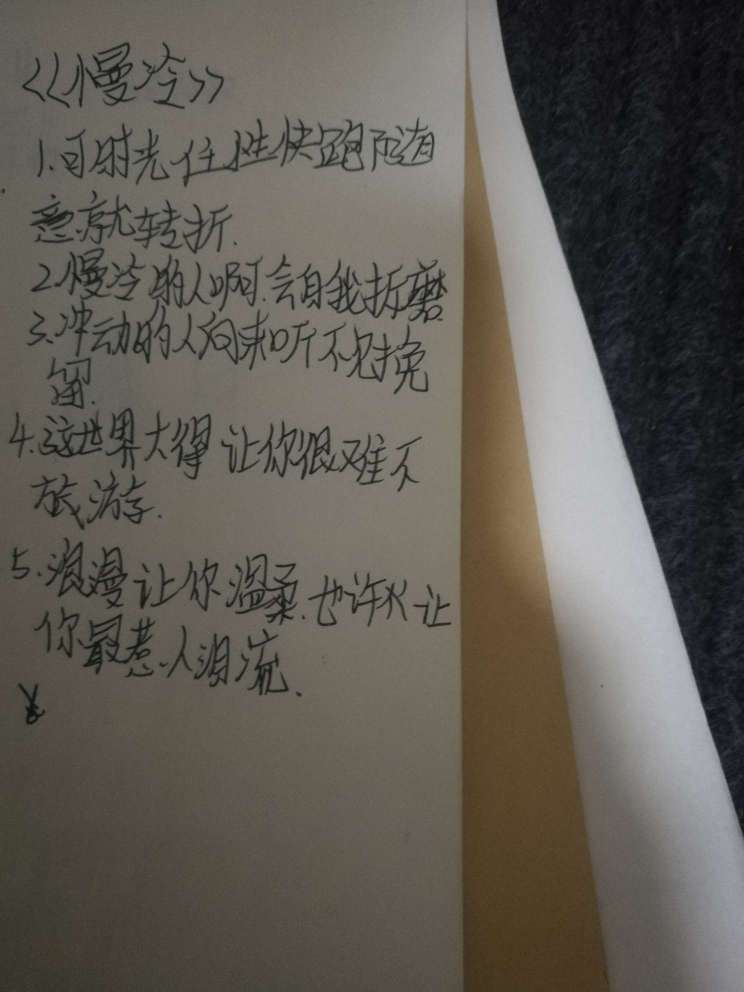 <<慢冷>>
1.可时光任性快跑随
意就转折.
2.慢冷的人啊.会自我折磨
3.冲动的人向来听不见挽
留.
4.这世界大得让你很难不
旅游.
5.浪漫让你温柔.也许 让
你最惹人泪流.